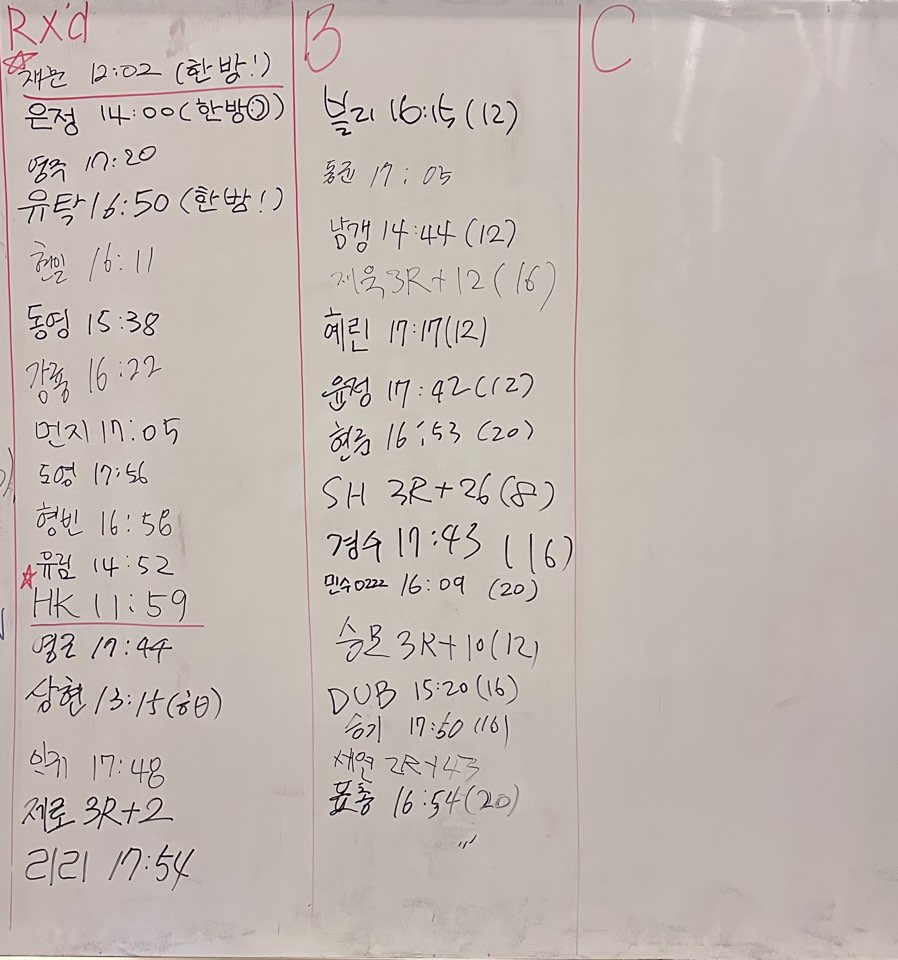 Rx'd
12:02 (한방!)
은정 14:00 (한방☺)
영주 17:20
유탁 16:50 (한방!)
현일 16:11
동영 15:38
16:22
먼지 17:05
도영 17:56
형빈 16:58
유림 14:52
HK 11:59
영근 17:44
상현 13:15
17:48
제로 3R+2
리리 17:54
B
블리 16:15 (12)
17:05
남갱 14:44 (12)
재욱 3R+12 (16)
혜린 17:17 (12)
윤정 17:42 (12)
16:53 (20)
SH 3R+26 (8)
경수 17:43 (16)
민수0222 16:09 (20)
3R+10 (12)
DUB 15:20 (16)
승기 17:50 (16)
2R+43
16:54 (20)
C